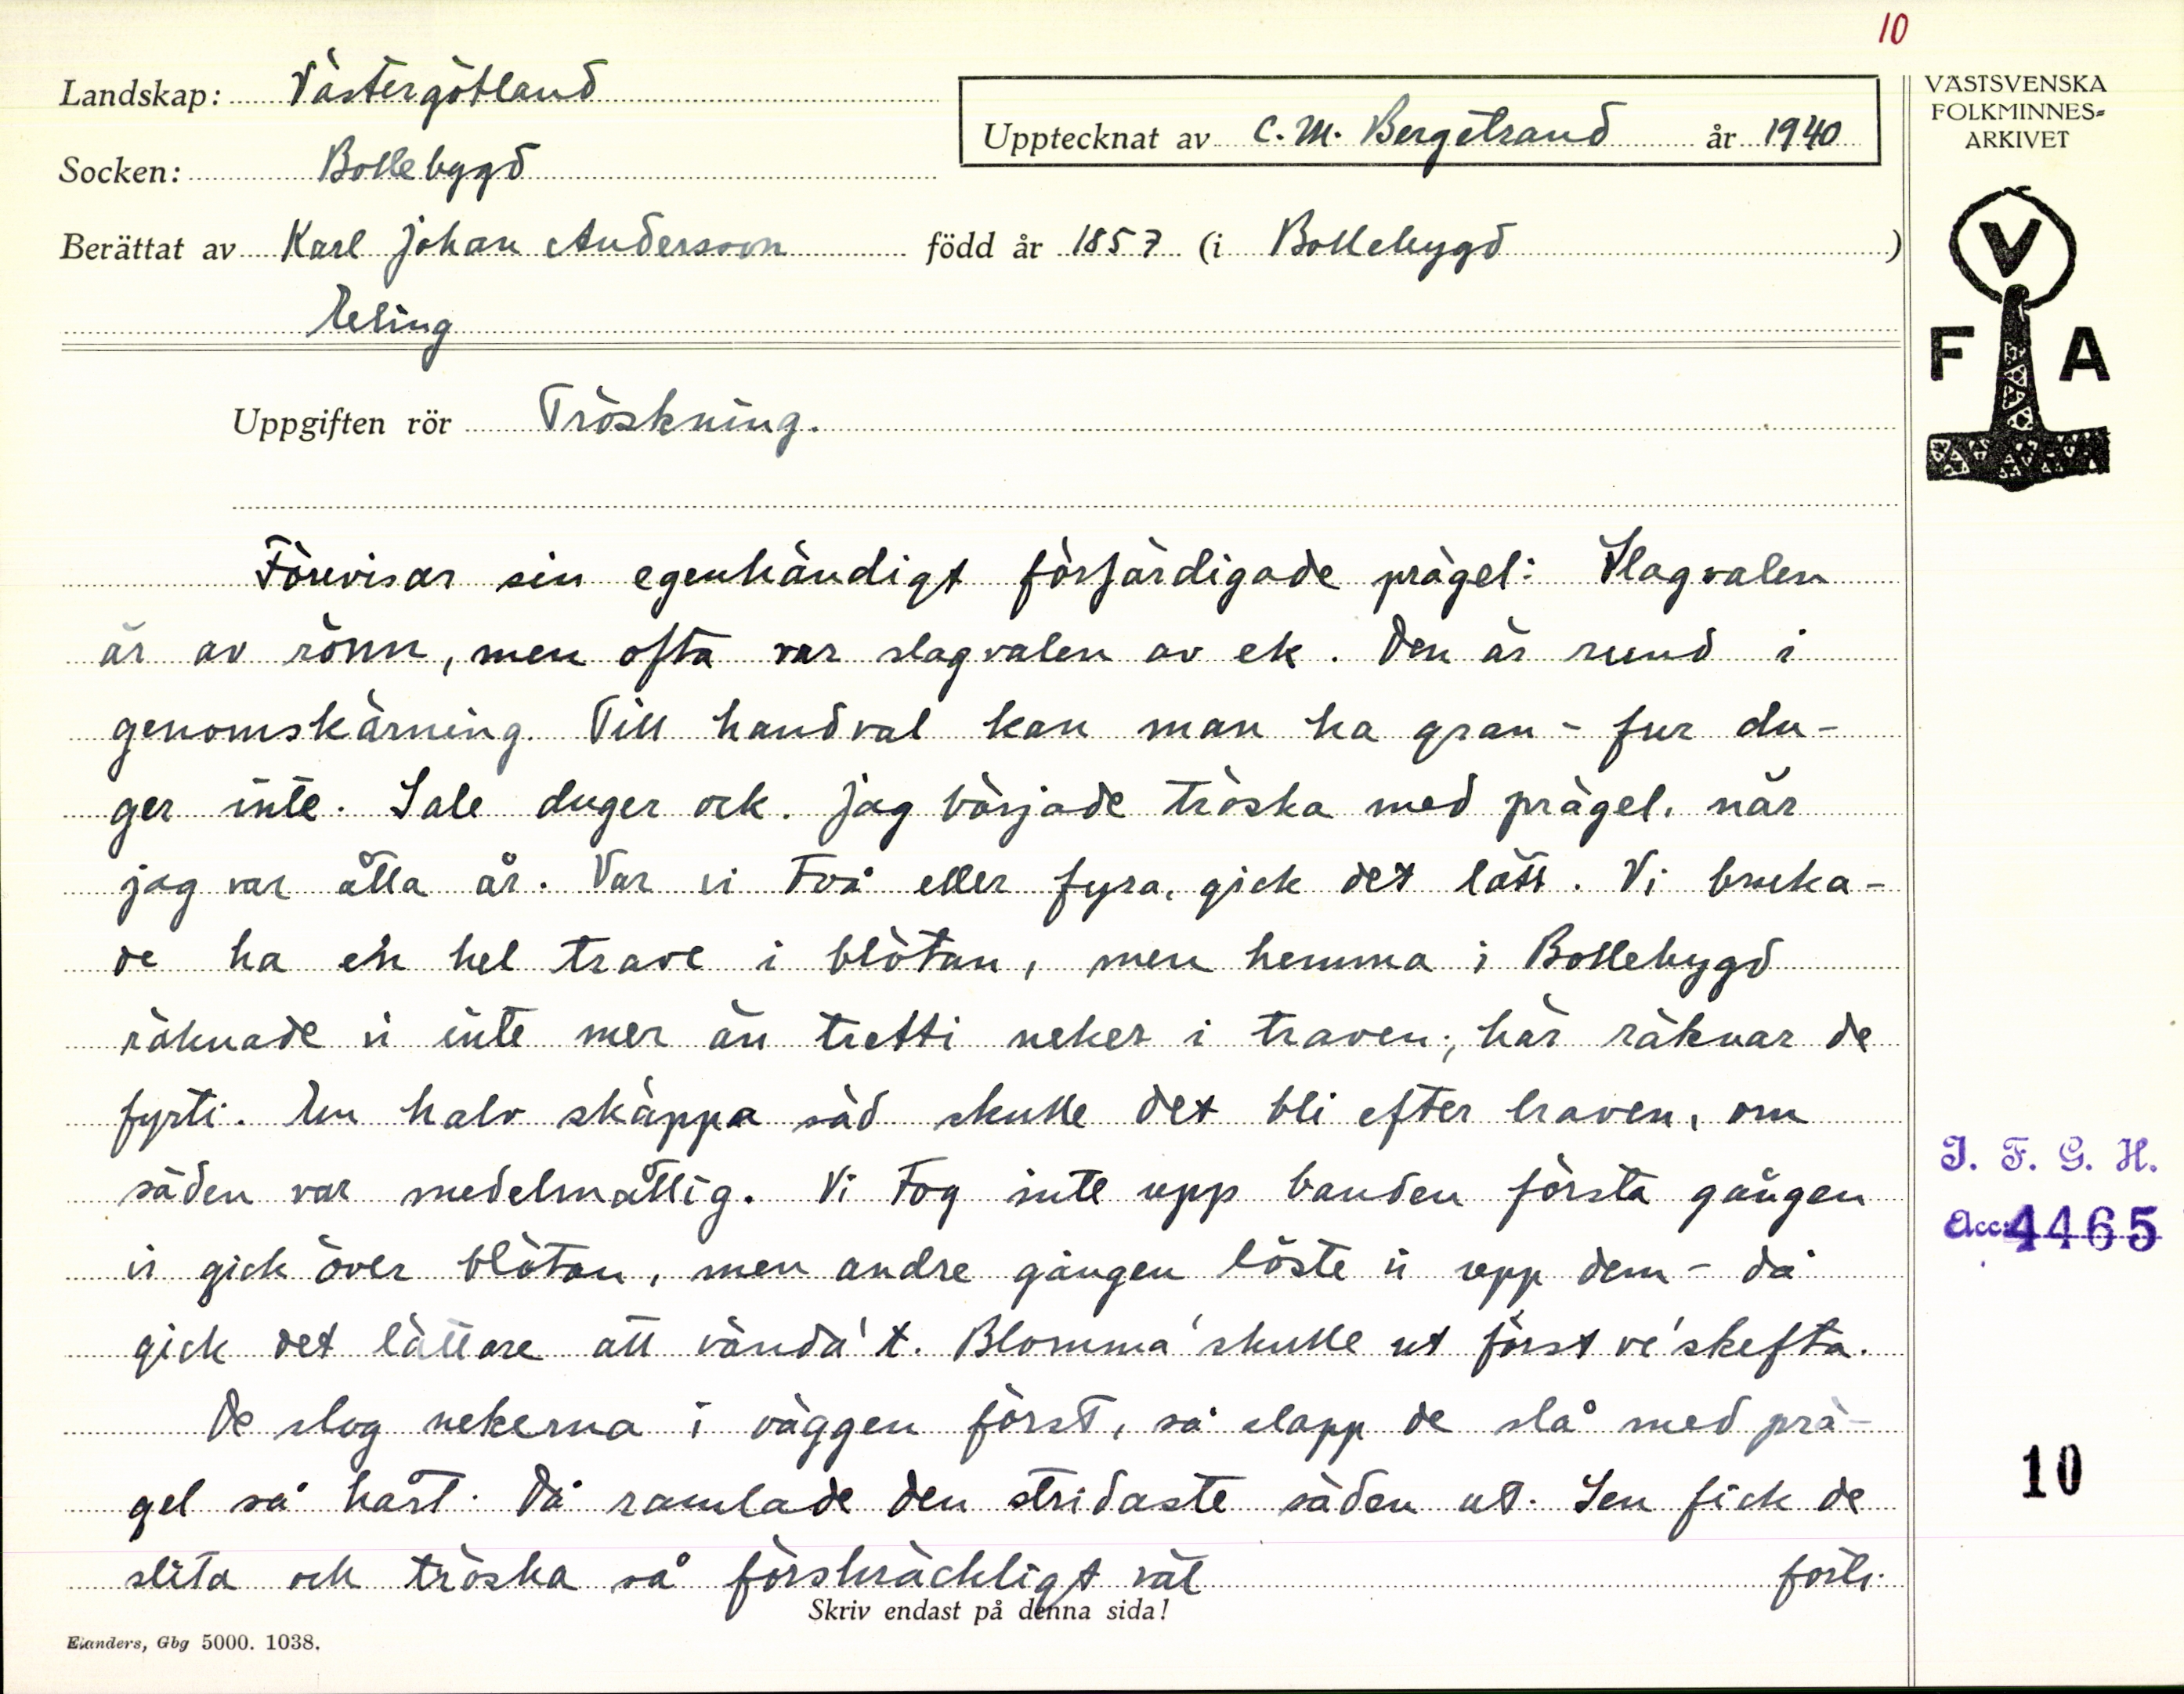 10
Landskap: Västergötland
Socken: Bollebygd
Upptecknat av C. M. Bergstrand år 1940
VÄSTSVENSKA
FOLKMINNES-
ARKIVET
Berättat av Karl Johan Andersson född år 1857 (i Bollebygd)
V
F A
Uppgiften rör Tröskning.
Förevisar sin egenhändigt förfärdigade prägel: Slagvalen
är av rönn, men ofta var slagvalen av ek. Den är rund i
genomskärning. Till handval kan man ha gran - fur du-
ger inte. Sale duger ock. Jag började tröska med prägel, när
jag var åtta år. Var vi två eller fyra, gick det lätt. Vi bruka-
de ha en hel trave i blötan, men hemma i Bollebygd
räknade vi inte mer än tretti neker i traven; här räknar de
fyrti. En halv skäppa säd skulle det bli efter traven, om
säden var medelmåttig. Vi tog inte upp banden första gången
vi gick över blötan, men andre gången löste vi upp dem - då
gick det lättare att vända't. Blomma' skulle ut först ve' skefta.
De slog nekerna i väggen först, så slapp de slå med prä-
gel så hårt. Då ramlade den stridaste säden ut. Sen fick de
slita och tröska så förskräckligt väl
forts.
Skriv endast på denna sida!
Elanders, Gbg 5000. 1038.
I. F. G. H.
Acc: 4465
10